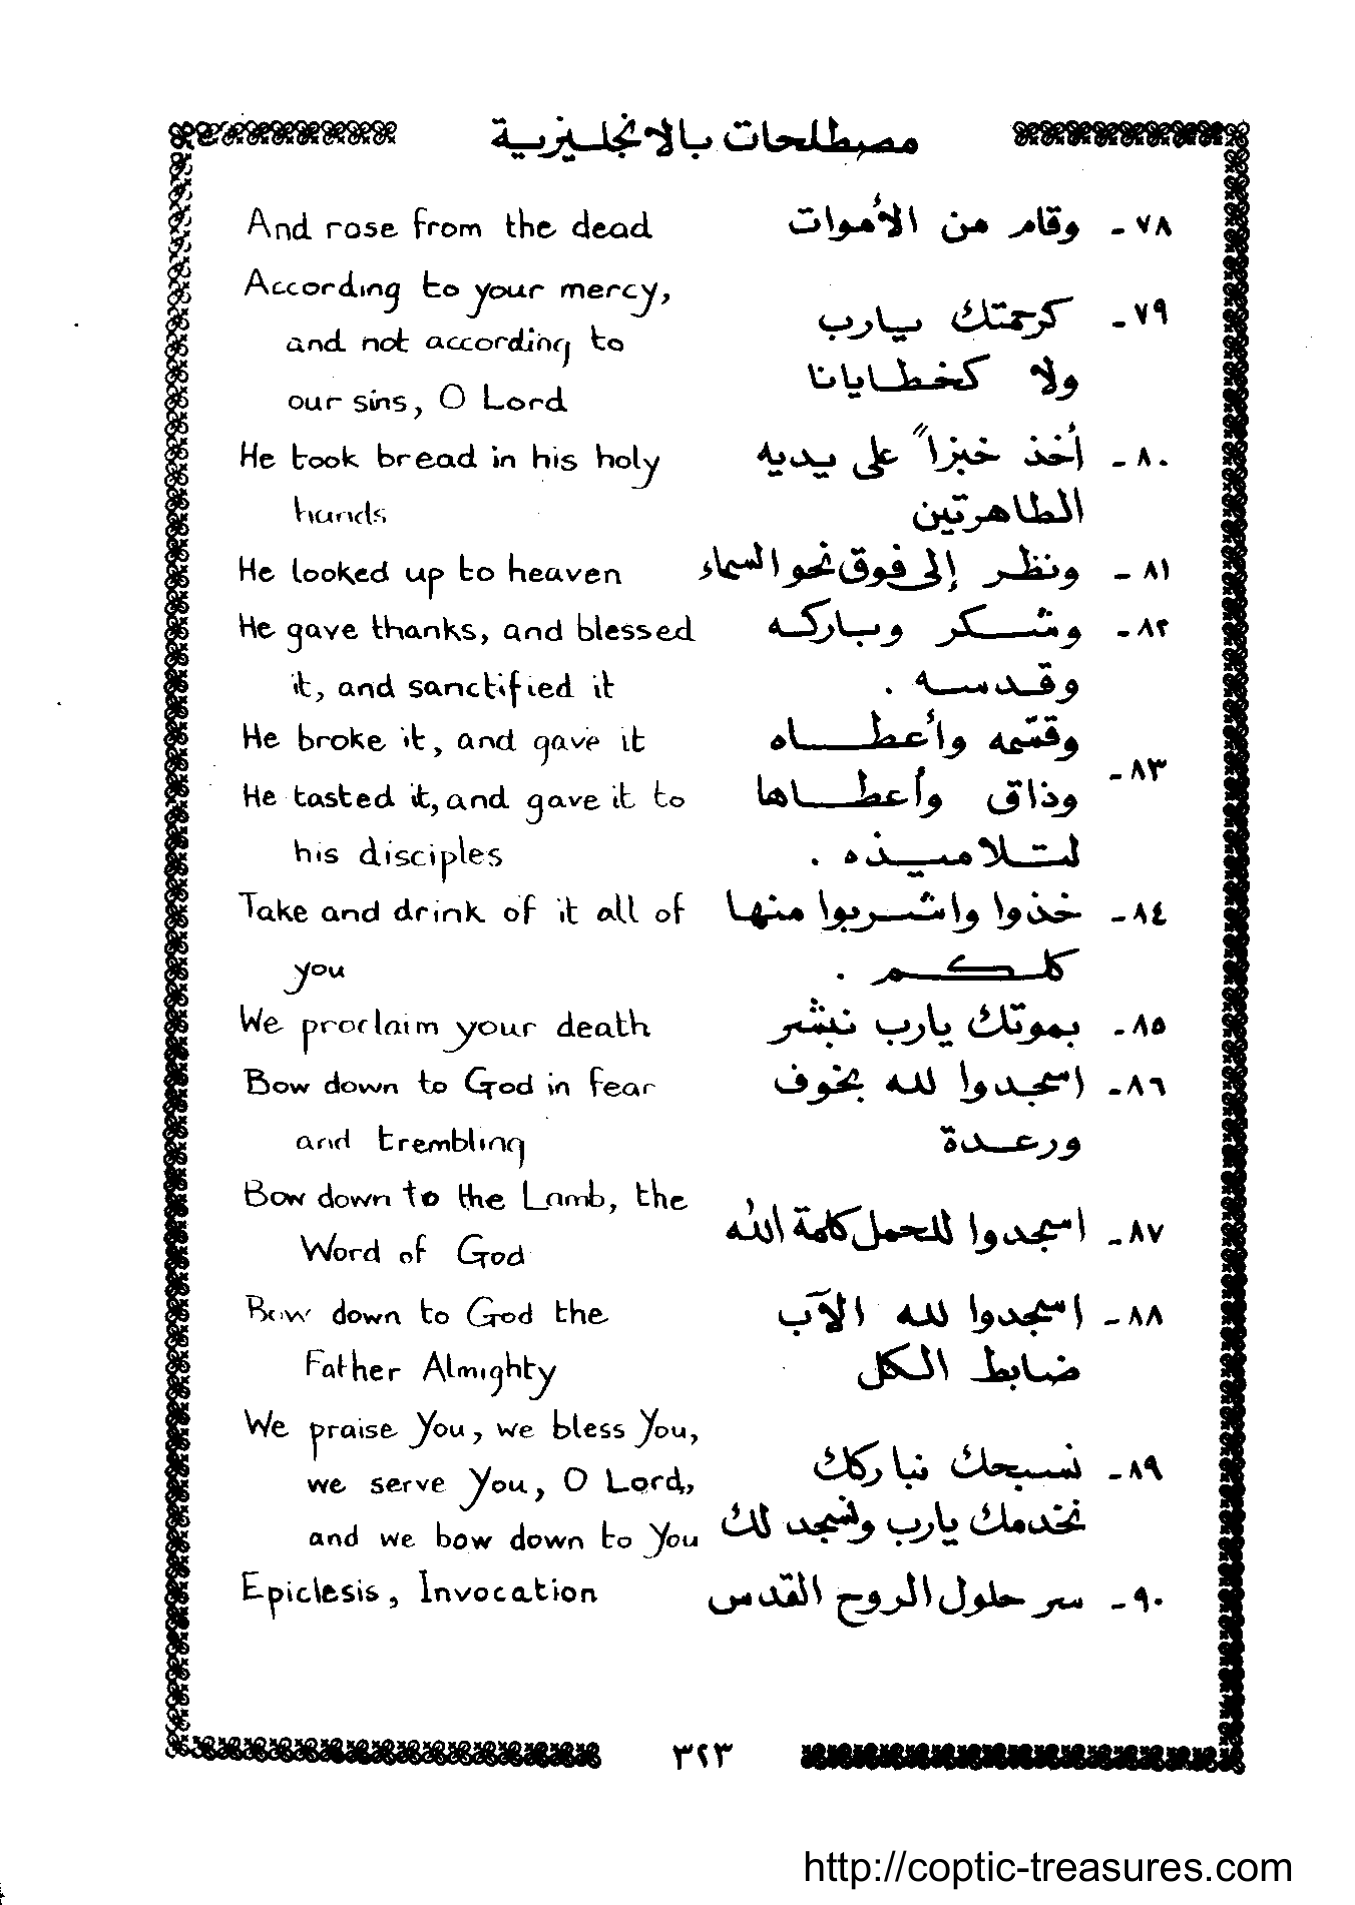 مصطلحات بالانجليزية
And rose from the dead
٧٨ - وقام من الأموات
According to your mercy,
and not according to
our sins, O Lord
٧٩ - كرحمتك يارب
ولا كخطايانا
He took bread in his holy
hands
٨٠ - أخذ خبزاً على يديه
الطاهرتين
He looked up to heaven
٨١ - ونظر إلى فوق نحو السماء
He gave thanks, and blessed
it, and sanctified it
٨٢ - وشكر وباركه
وقدسه .
He broke it, and gave it
He tasted it, and gave it to
his disciples
٨٣ - وقسّمه وأعطاه
وذاق وأعطاها
لتلاميذه .
Take and drink of it all of
you
٨٤ - خذوا واشربوا منها
كلكم .
We proclaim your death
٨٥ - بموتك يارب نبشر
Bow down to God in fear
and trembling
٨٦ - اسجدوا لله بخوف
ورعدة
Bow down to the Lamb, the
Word of God
٨٧ - اسجدوا للحمل كلمة الله
Bow down to God the
Father Almighty
٨٨ - اسجدوا لله الآب
ضابط الكل
We praise You, we bless You,
we serve You, O Lord,
and we bow down to You
٨٩ - نسبحك نباركك
نخدمك يارب ونسجد لك
Epiclesis, Invocation
٩٠ - سر حلول الروح القدس
٣٢٣
http://coptic-treasures.com